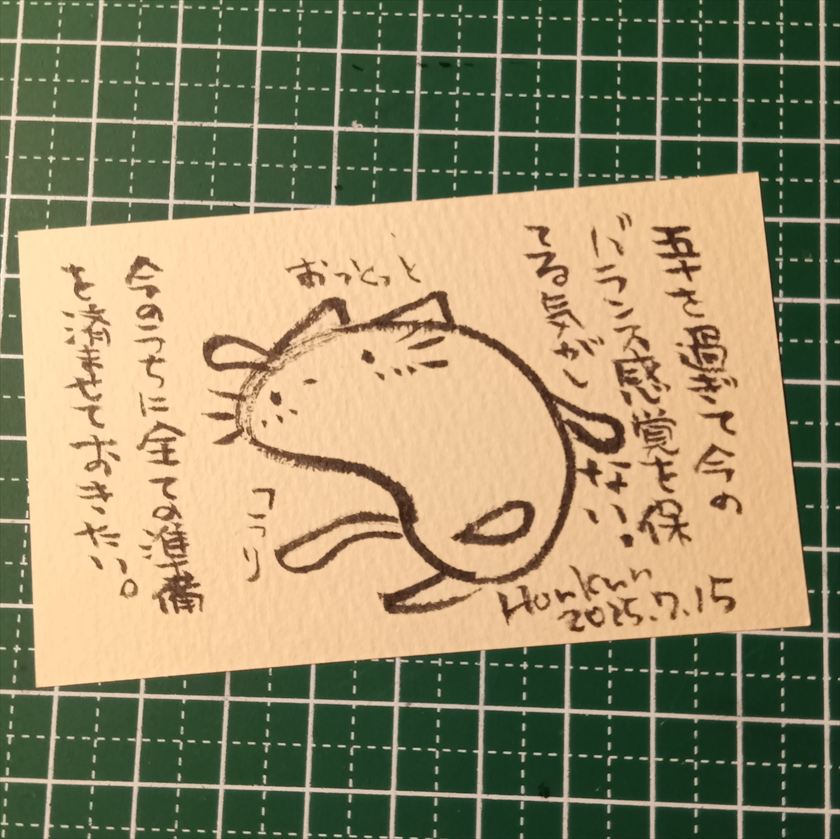 五十を過ぎて今の
バランス感覚を保
てる気がしない。
おっとっと
コラリ
今のうちに全ての準備
を済ませておきたい。
Honkun
2025.7.15